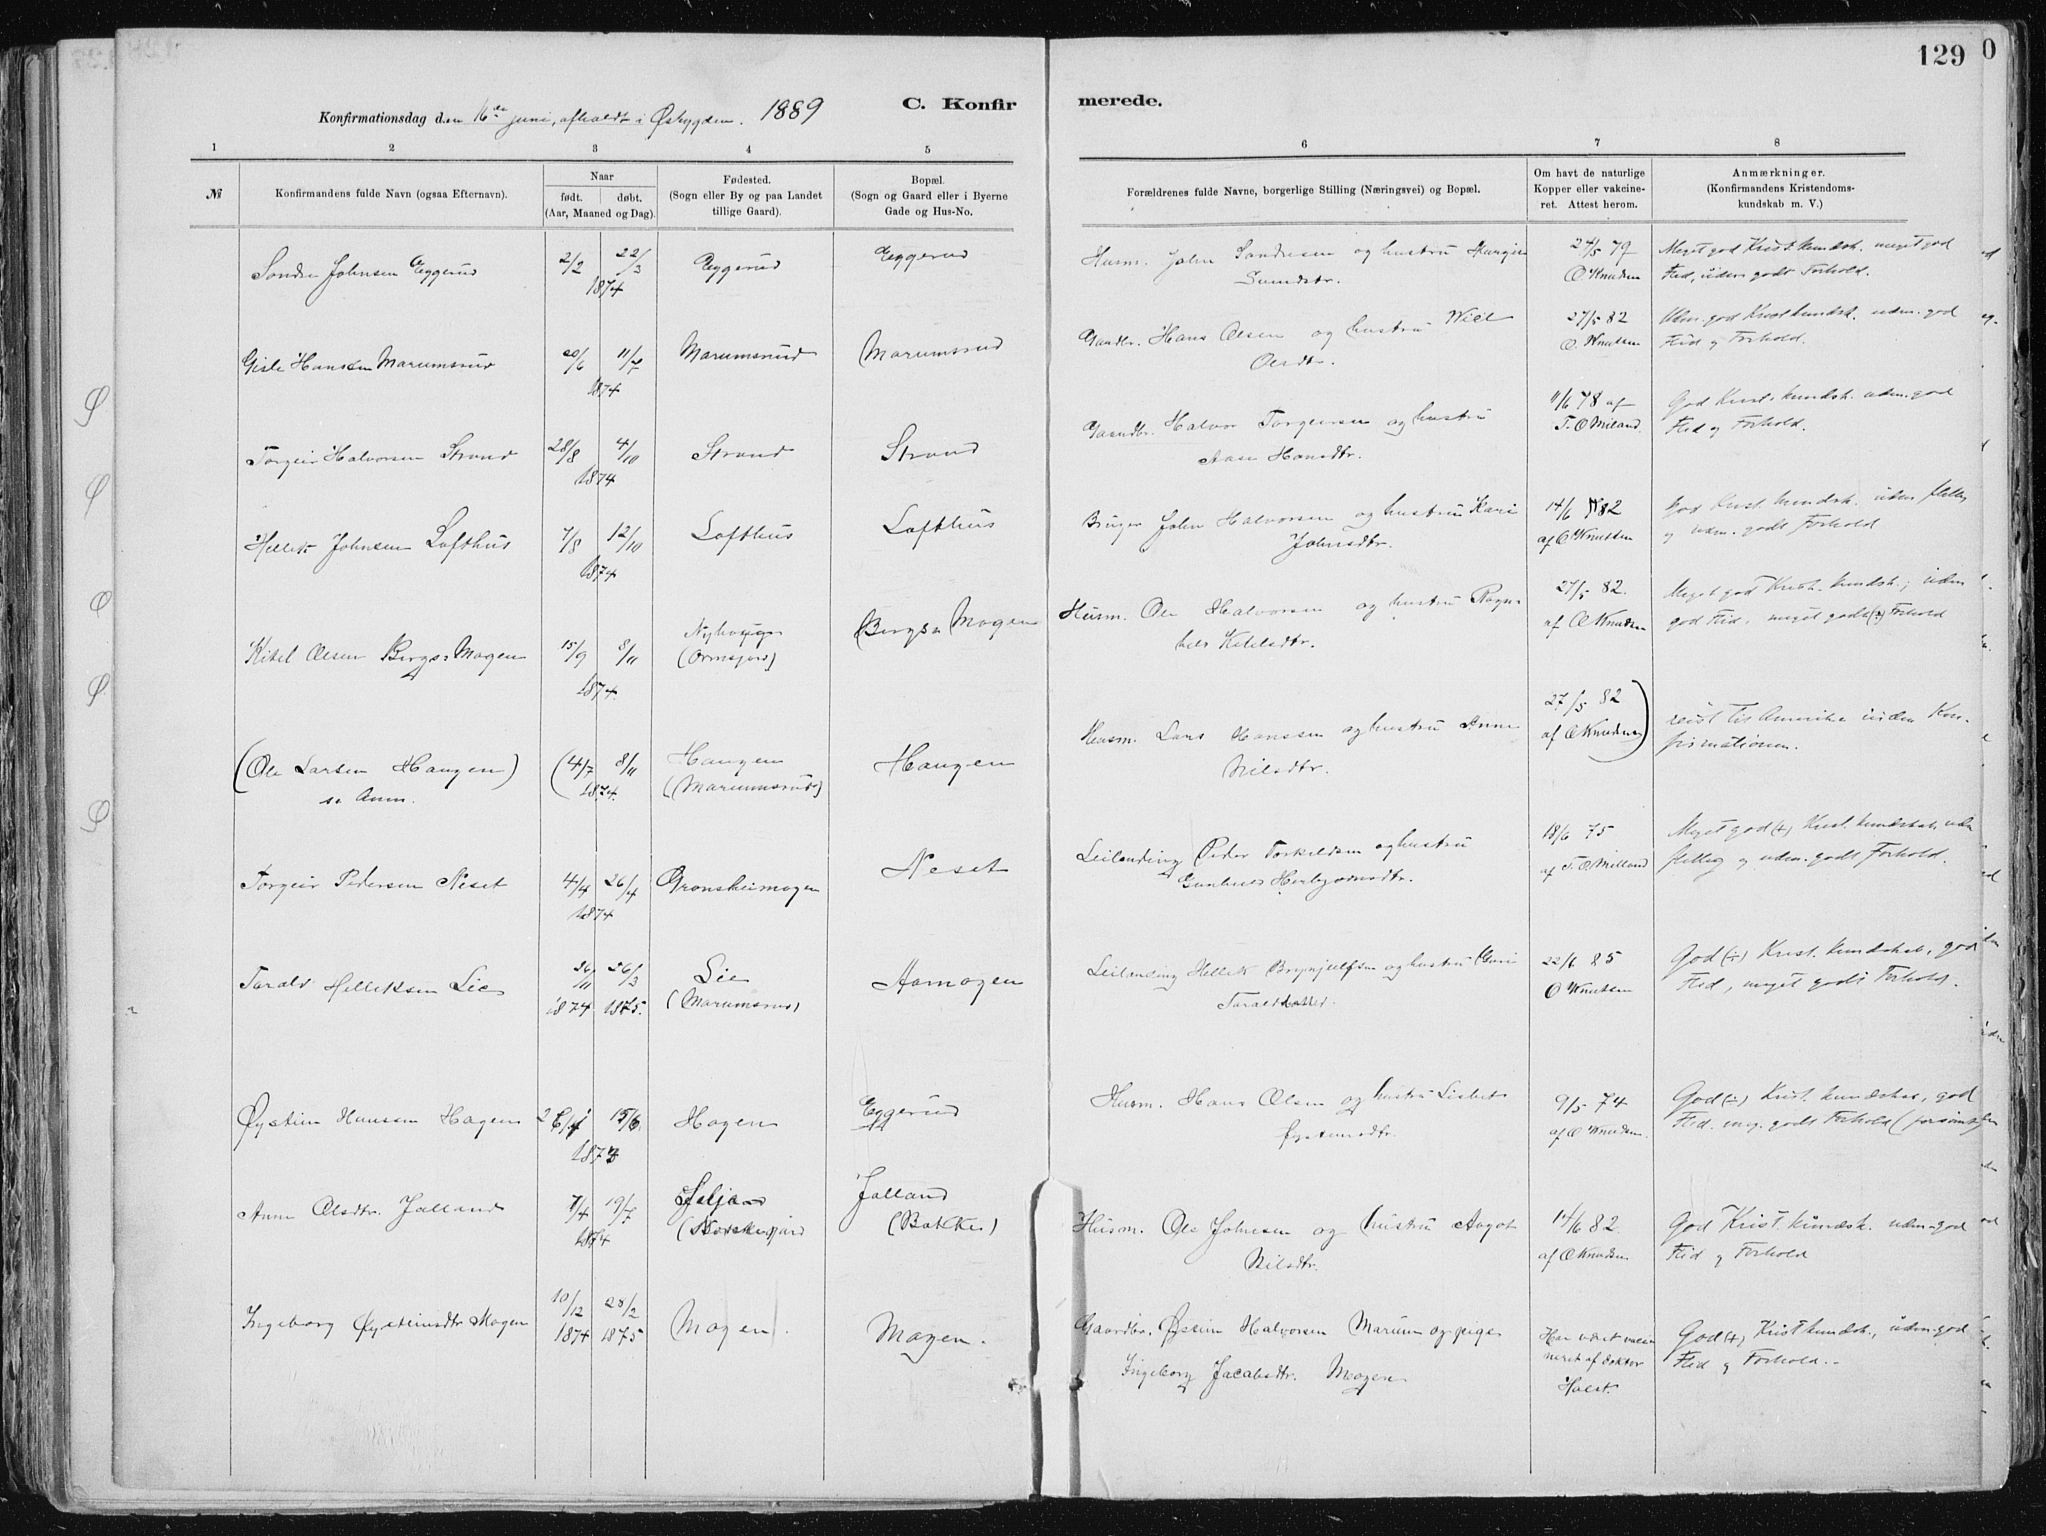 129
0
C. Konfir merede.
Konfirmationsdag den 16de juni, afholdt i Øsbygden. 1889
1 2 3 4 5 6 7 8
№
Konfirmandens fulde Navn (ogsaa Efternavn).
Naar
født. døbt.
(Aar, Maaned og Dag).
Fødested.
(Sogn eller By og paa Landet
tillige Gaard).
Bopæl.
(Sogn og Gaard eller i Byerne
Gade og Hus-No.
Forældrenes fulde Navne, borgerlige Stilling (Næringsvei) og Bopæl.
Om havt de naturlige
Kopper eller vakcine-
ret. Attest herom.
Anmærkninger.
(Konfirmandens Kristendoms-
kundskab m. V.)
Sondre Johnsen Eggerud 2/2 22/3 Eggerud Eggerud Husm. John Sondresen og hustru 24/5 79 Meget god Krist. kundsk. meget god
1874 Svendsdtr. O Knudsen Flid, udm. godt Forhold.
Gisle Hansen Marumsrud 20/6 11/7 Marumsrud Marumsrud Gaardbr. Hans Olsen og hustru 27/5 82 Udm. god Krist kundsk. udm. god
1874 Olsdtr. O. Knutsen Flid og Forhold.
Torgeir Halvorsen Strand 28/8 4/10 Strand Strand Gaardbr. Halvor Torgeirsen og hustru 11/6 78 af God Krist. kundsk. udm. god
1874 Aase Hansdtr. T. O Miland. Flid og Forhold.
Hellek Johnsen Lofthus 7/8 12/10 Lofthus Lofthus Bruger John Halvorsen og hustru Kari 14/6 82 God Krist. kundsk. udm flittig
1874 Johnsdtr. af O Knutsen og udm. godt Forhold
Kitel Olsen Bergs. Mogen 15/9 8/11 (Ormsjord) Bergs. Mogen Husm. Ole Halvorsen og hustru Ragn- 27/5 82. Meget god Krist. kundsk., udm
1874. hild Kitilsdtr. af O Knudsen god Flid, meget godt (÷) Forhold
(Ole Larsen Haugen) (4/7 8/11 Haugen Haugen Husm. Lars Hanssen og hustru Anne 27/5 82 reist til Amerika inden Kon-
se Anm. 1874. (Marumsrud) Nilsdtr. af O Knudsen) firmationen.
Torgeir Pedersen Neset 4/4 26/4 Grønsheimogen Neset Leilending Peder Torkildsen og hustru 18/6 75 Meget god (+) Krist. kundskab, udm
1874 Gunhild Herbjørnsdtr. af T. O Milland flittig og udm. godt Forhold.
Tarald Helleksen Lie 26/11 26/3 Lie Aamogen Leilending Hellek Brynjulfsen og hustru Guri 22/6 85 God (÷) Krist. kundskab, god
1874 1875. (Marumsrud) Taraldsdatter. O Knutsen Flid, meget godt Forhold.
Øystein Hansen Hagen 15/6 Hagen Eggerud Husm. Hans Olsen og hustru Lisbet 9/5 74 God (÷) Krist. kundskab, god
1873 Øysteinsdtr. af O Knudsen. Flid. meg. godt Forhold
Anne Olsdtr. Jalland 7/4 19/7 Jalland Husm. Ole Johnsen og hustru Aagot 14/6 82 God Krist. kundsk. udm-god
1874 (Bakke) Nilsdtr. af O Knudsen Flid og Forhold
Ingeborg Øysteinsdtr Mogen 10/12 28/2 Mogen. Mogen. Gaardbr. Østein Halvorsen Marum og pige Har været vacci- God (+) Kristkundsk., udm-god
1874 1875 Ingeborg Jacobsdtr. Mogen neret af doktor Flid og Forhold.
Holst